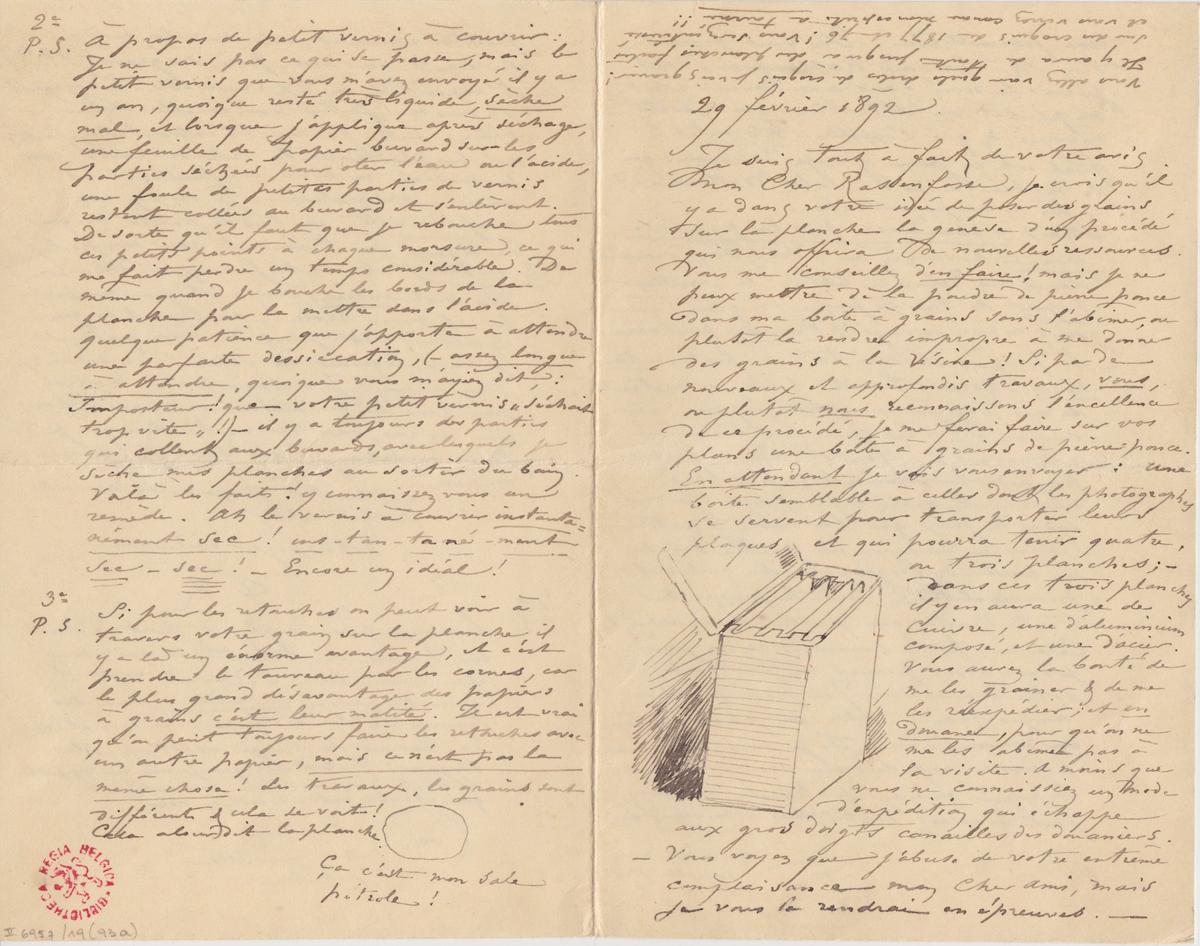 2e
P. S.
À propos de petit vernis à couvrir :
Je ne sais pas ce qui se passe, mais le
petit vernis que vous m'avez envoyé il y a
un an, quoique resté très liquide, sèche
mal, et lorsque j'applique après séchage,
une feuille de papier buvard sur les
parties séchées pour ôter l'eau ou l'acide,
une foule de petites parties de vernis
restent collées au buvard et s'enlèvent.
De sorte qu'il faut que je rebouche tous
ces petits points à chaque morsure, ce qui
me fait perdre un temps considérable. De
même quand je bouche les bords de la
planche pour la mettre dans l'acide.
quelque patience que j'apporte à attendre
une parfaite dessiccation, (- assez longue
à attendre, quoique vous m'ayiez dit, :
Imposteur ! que votre petit vernis „séchait
trop vite„ !) - il y a toujours des parties
qui collent aux buvards, avec lesquels je
sèche mes planches au sortir du bain.
Voilà les faits ! y connaissez vous un
remède. Ah le vernis à couvrir instanta=
nément sec ! ins-tan-ta-né-ment
sec - sec ! - Encore un idéal !
3e
P. S.
Si pour les retouches on peut voir à
travers votre grain sur la planche, il
y a là un énorme avantage, et c'est
prendre le taureau par les cornes, car
le plus grand désavantage des papiers
à grains c'est leur matité. Il est vrai
qu'on peint toujours faire les retouches avec
un autre papier, mais ce n'est pas la
même chose ! des travaux, les grains sont
différents & cela se voit !
Cela alourdit la planche.
Ça c'est mon sale
pétrole !
BIBLIOTHECA REGIA BELGICA
II 6957/19 (93a)
Vous allez voir quels drôles de croquis je vous grave !
Il y aura de tout jusqu'à des planches faites
sur des croquis de 1877 et 76 ! Vous serez
et vous verrez comme mon esprit a tourné !!
29 février 1892
Je suis tout à fait de votre avis
Mon Cher Rassenfosse, je crois qu'il
y a dans votre idée de poser des grains
sur la planche la genèse d'un procédé
qui nous offrira de nouvelles ressources.
Vous me conseillez d'en faire ! mais je ne
peux mettre de la poudre de pierre ponce
dans ma boîte à grains sans l'abîmer, ou
plutôt la rendre impropre à me donner
des grains à la résine ! Si par de
nouveaux et approfondis travaux, vous,
ou plutôt nous reconnaissons l'excellence
de ce procédé, je me ferai faire sur vos
plans une boîte à grains de pierre ponce.
En attendant je vais vous envoyer : une
boîte semblable à celles dont les photographes
se servent pour transporter leurs
plaques et qui pourra tenir quatre,
ou trois planches ; -
dans ces trois planches
il y en aura une de
Cuivre, une d'aluminium
composé, et une d'acier.
Vous aurez la bonté de
me les grainer & de me
les réexpédier ; et en
douane, pour qu'on ne
me les abîme pas à
la visite. A moins que
vous ne connaissiez un mode
d'expédition qui échappe
aux gros doigts canailles des douaniers.
- Vous voyez que j'abuse de votre extrême
complaisance mon Cher Ami, mais
je vous la rendrai en épreuves. -